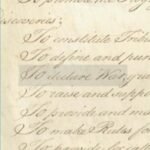 discoveries;
To constitute Trib
To define and pun
To declare War, gra
To raise and suppo
To provide and ma
To make Rules for
To provide for call